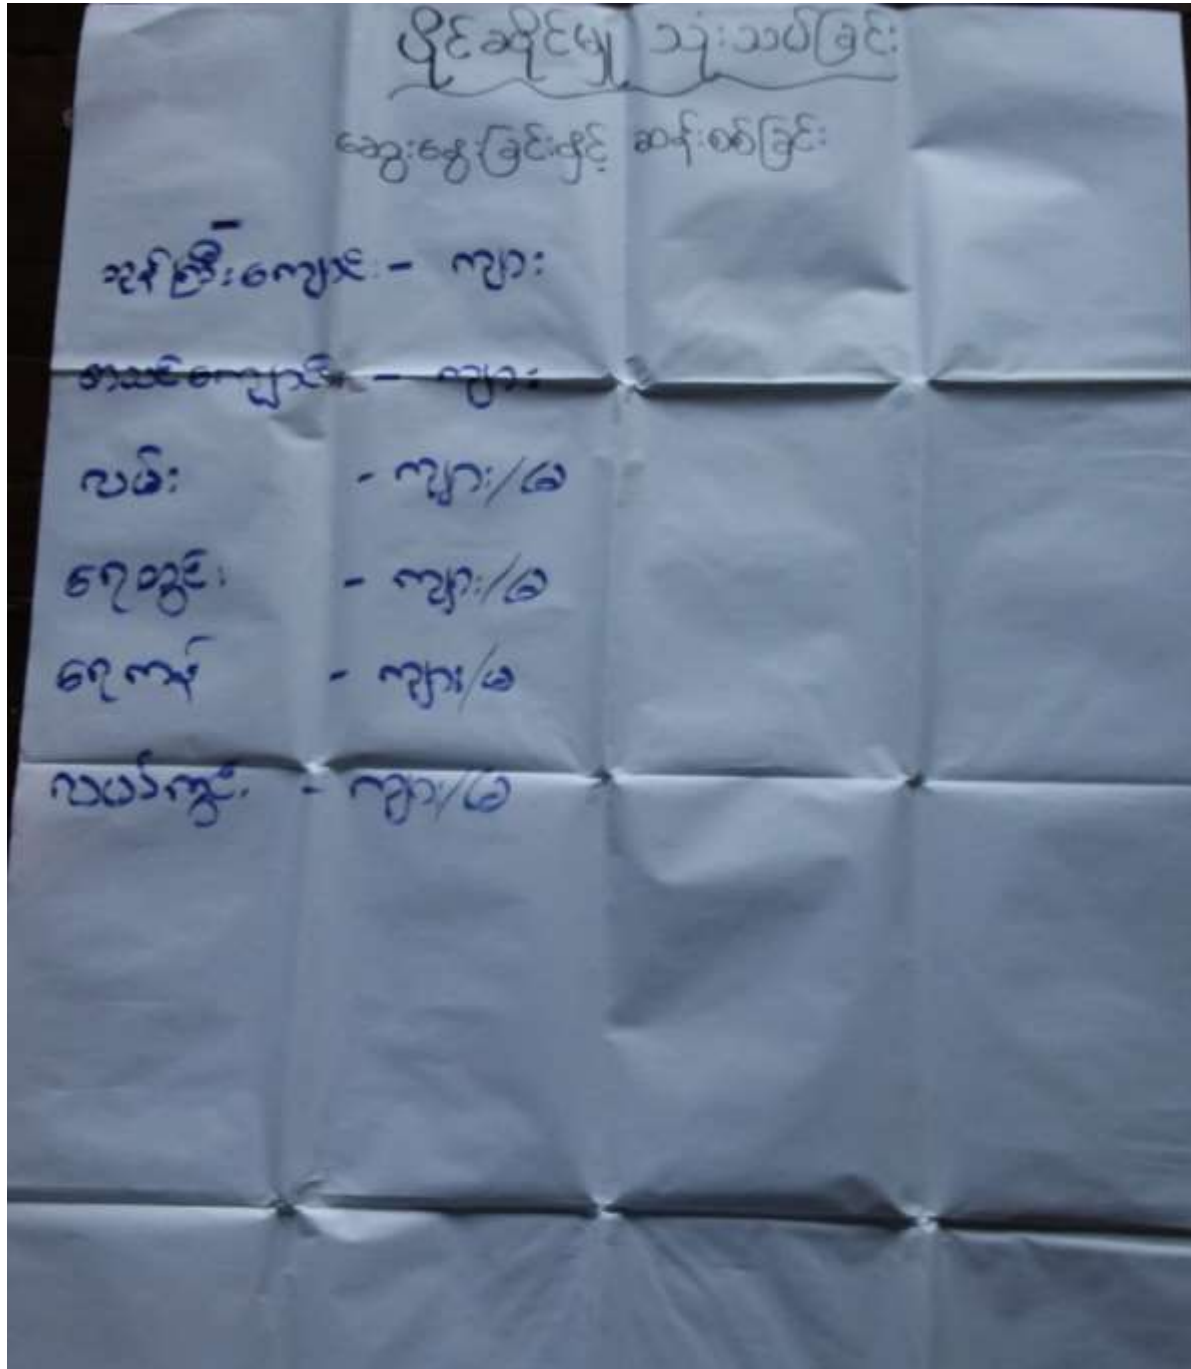 ပိုင်ဆိုင်မှု သုံးသပ်ခြင်း
ဆွေးနွေးခြင်းနှင့် ဆန်းစစ်ခြင်း
ဘုန်းကြီးကျောင်း - ကျား
စာသင်ကျောင်း - ကျား
လမ်း - ကျား/မ
ရေတွင်း - ကျား/မ
ရေကန် - ကျား/မ
လယ်ကွင်း - ကျား/မ